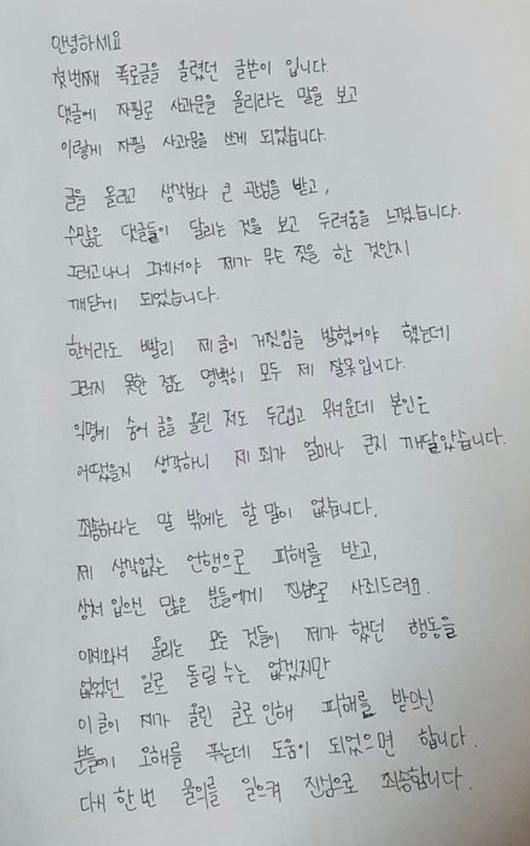 안녕하세요
첫번째 폭로글을 올렸던 글쓴이 입니다.
댓글에 자필로 사과문을 올리라는 말을 보고
이렇게 자필 사과문을 쓰게 되었습니다.
글을 올리고 생각보다 큰 관심을 받고,
수많은 댓글들이 달리는 것을 보고 두려움을 느꼈습니다.
그러고나니 그제서야 제가 무슨 짓을 한 것인지
깨닫게 되었습니다.
한시라도 빨리 제 글이 거짓임을 밝혔어야 했는데
그러지 못한 점도 명백히 모두 제 잘못입니다.
익명에 숨어 글을 올린 저도 두렵고 무서운데 본인은
어땠을지 생각하니 제 죄가 얼마나 큰지 깨달았습니다.
죄송하다는 말 밖에는 할 말이 없습니다.
제 생각없는 언행으로 피해를 받고,
상처 입으신 많은 분들에게 진심으로 사죄드려요.
이제와서 올리는 모든 것들이 제가 했던 행동을
없었던 일로 돌릴 수는 없겠지만
이 글이 제가 올린 글로 인해 피해를 받으신
분들에 오해를 푸는데 도움이 되었으면 합니다.
다시 한번 물의를 일으켜 진심으로 죄송합니다.